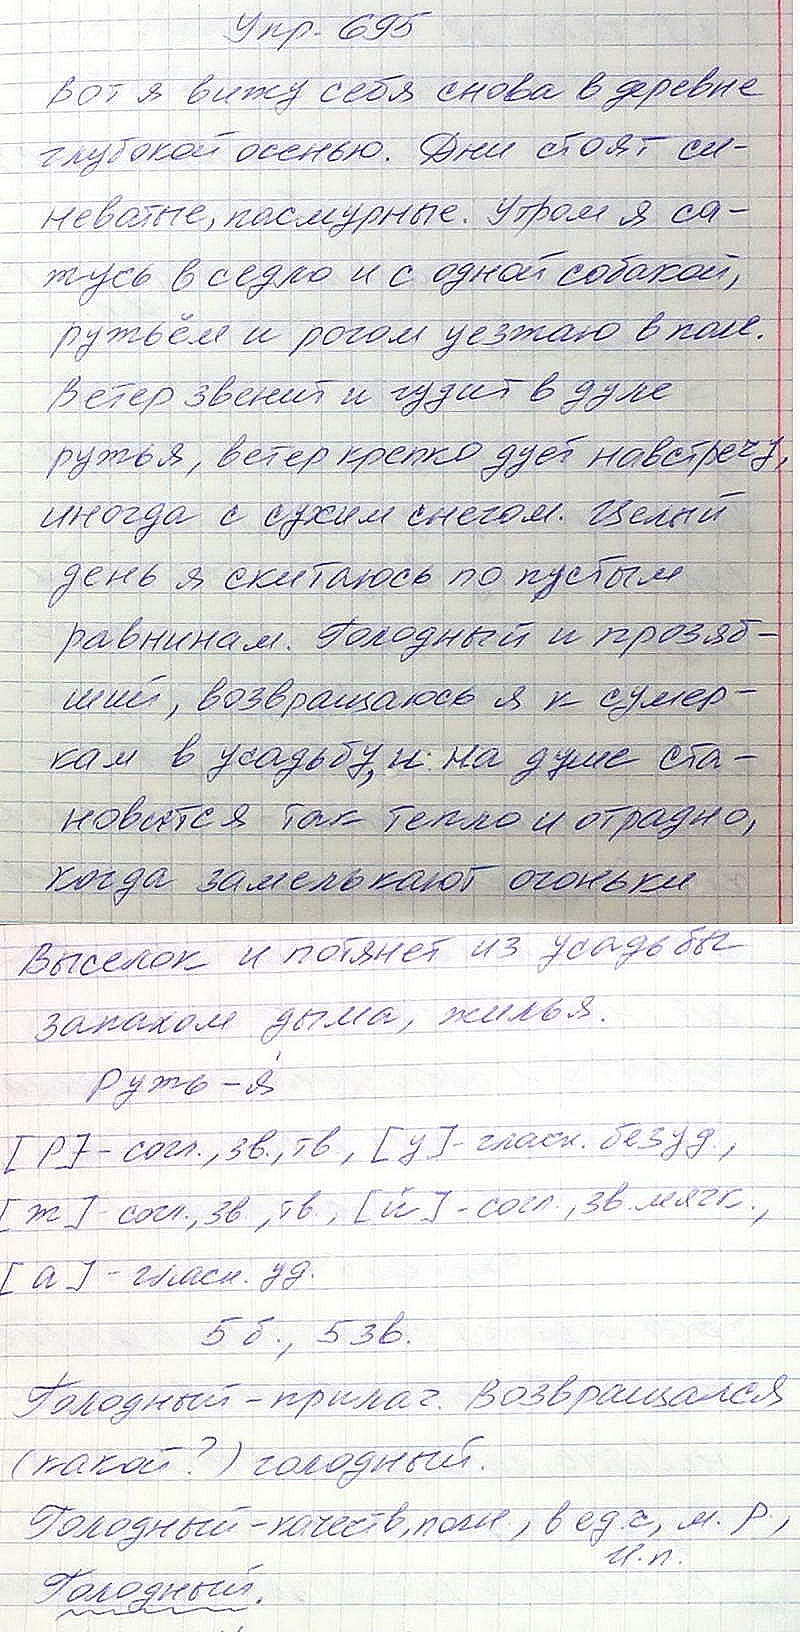 Упр. 695
Вот я вижу себя снова в деревне
глубокой осенью. Дни стоят си-
неватые, пасмурные. Утром я са-
жусь в седло и с одной собакой,
ружьём и рогом уезжаю в поле.
Ветер звенит и гудит в дуле
ружья, ветер крепко дует навстречу,
иногда с сухим снегом. Целый
день я скитаюсь по пустым
равнинам. Голодный и прозяб-
ший, возвращаюсь я к сумер-
кам в усадьбу, и на душе ста-
новится так тепло и отрадно,
когда замелькают огоньки
Выселок и потянет из усадьбы
запахом дыма, жилья.
Ружь-я́
[р]- согл., зв., тв, [у]- гласн. безуд.,
[ж]- согл., зв., тв., [й]- согл., зв. мягк.,
[а]- гласн. уд.
5 б., 5 зв.
Голодный - прилаг. Возвращался
(какой?) голодный.
Голодный - качеств, полн., в ед.ч, м. р.,
И.п.
Голодный.